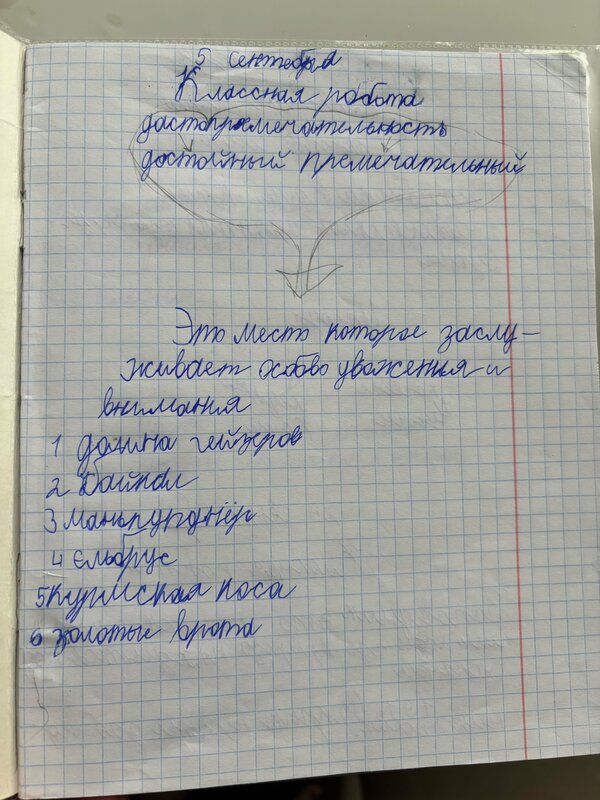 5 сентебря
Классная робота
дастопремечательность
достойный премечательный
Это место которое заслу-
живает особво уважения и
внимания
1 долина гейзеров
2 Байкал
3 Маньпупунёр
4 Ельбрус
5 Куршская коса
6 золотые врата